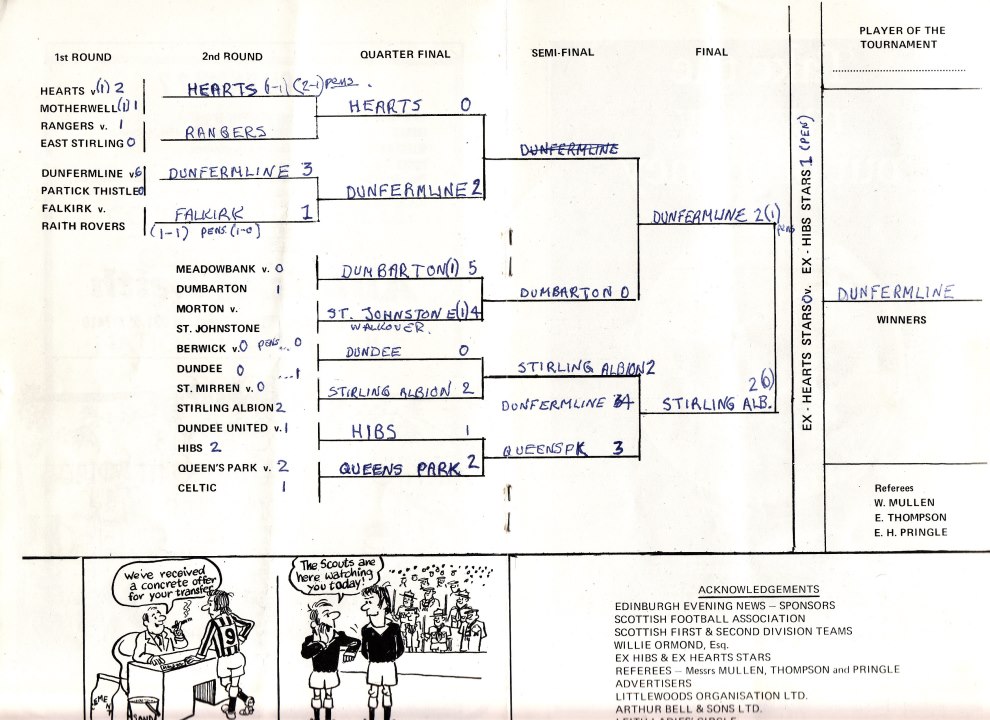 1st ROUND
2nd ROUND
QUARTER FINAL
SEMI-FINAL
FINAL
PLAYER OF THE
TOURNAMENT
HEARTS v. (1) 2
MOTHERWELL (1) 1
RANGERS v. 1
EAST STIRLING 0
DUNFERMLINE v. 6
PARTICK THISTLE 0
FALKIRK v.
RAITH ROVERS
(1-1) PENS. (1-0)
HEARTS (1-1) (2-1) PENS.
RANGERS
DUNFERMLINE 3
FALKIRK 1
MEADOWBANK v. 0
DUMBARTON 1
MORTON v.
ST. JOHNSTONE
BERWICK v. 0 PENS... 0
DUNDEE 0 ...1
ST. MIRREN v. 0
STIRLING ALBION 2
DUNDEE UNITED v. 1
HIBS 2
QUEEN'S PARK v. 2
CELTIC 1
HEARTS 0
DUNFERMLINE 2
DUMBARTON (1) 5
ST. JOHNSTONE (1) 4
WALKOVER.
DUNDEE 0
STIRLING ALBION 2
HIBS 1
QUEENS PARK 2
DUNFERMLINE
DUMBARTON 0
STIRLING ALBION 2
DUNFERMLINE 4
QUEENS PK 3
DUNFERMLINE 2 (1)
pens
2 (0)
STIRLING ALB.
EX - HEARTS STARS 0 v. EX - HIBS STARS 1 (PEN)
DUNFERMLINE
WINNERS
Referees
W. MULLEN
E. THOMPSON
E. H. PRINGLE
We've received
a concrete offer
for your transfer
9
CEMENT
SAND
The Scouts are
here watching
you today!
ACKNOWLEDGEMENTS
EDINBURGH EVENING NEWS — SPONSORS
SCOTTISH FOOTBALL ASSOCIATION
SCOTTISH FIRST & SECOND DIVISION TEAMS
WILLIE ORMOND, Esq.
EX HIBS & EX HEARTS STARS
REFEREES — Messrs MULLEN, THOMPSON and PRINGLE
ADVERTISERS
LITTLEWOODS ORGANISATION LTD.
ARTHUR BELL & SONS LTD.
LEITH LADIES' CIRCLE